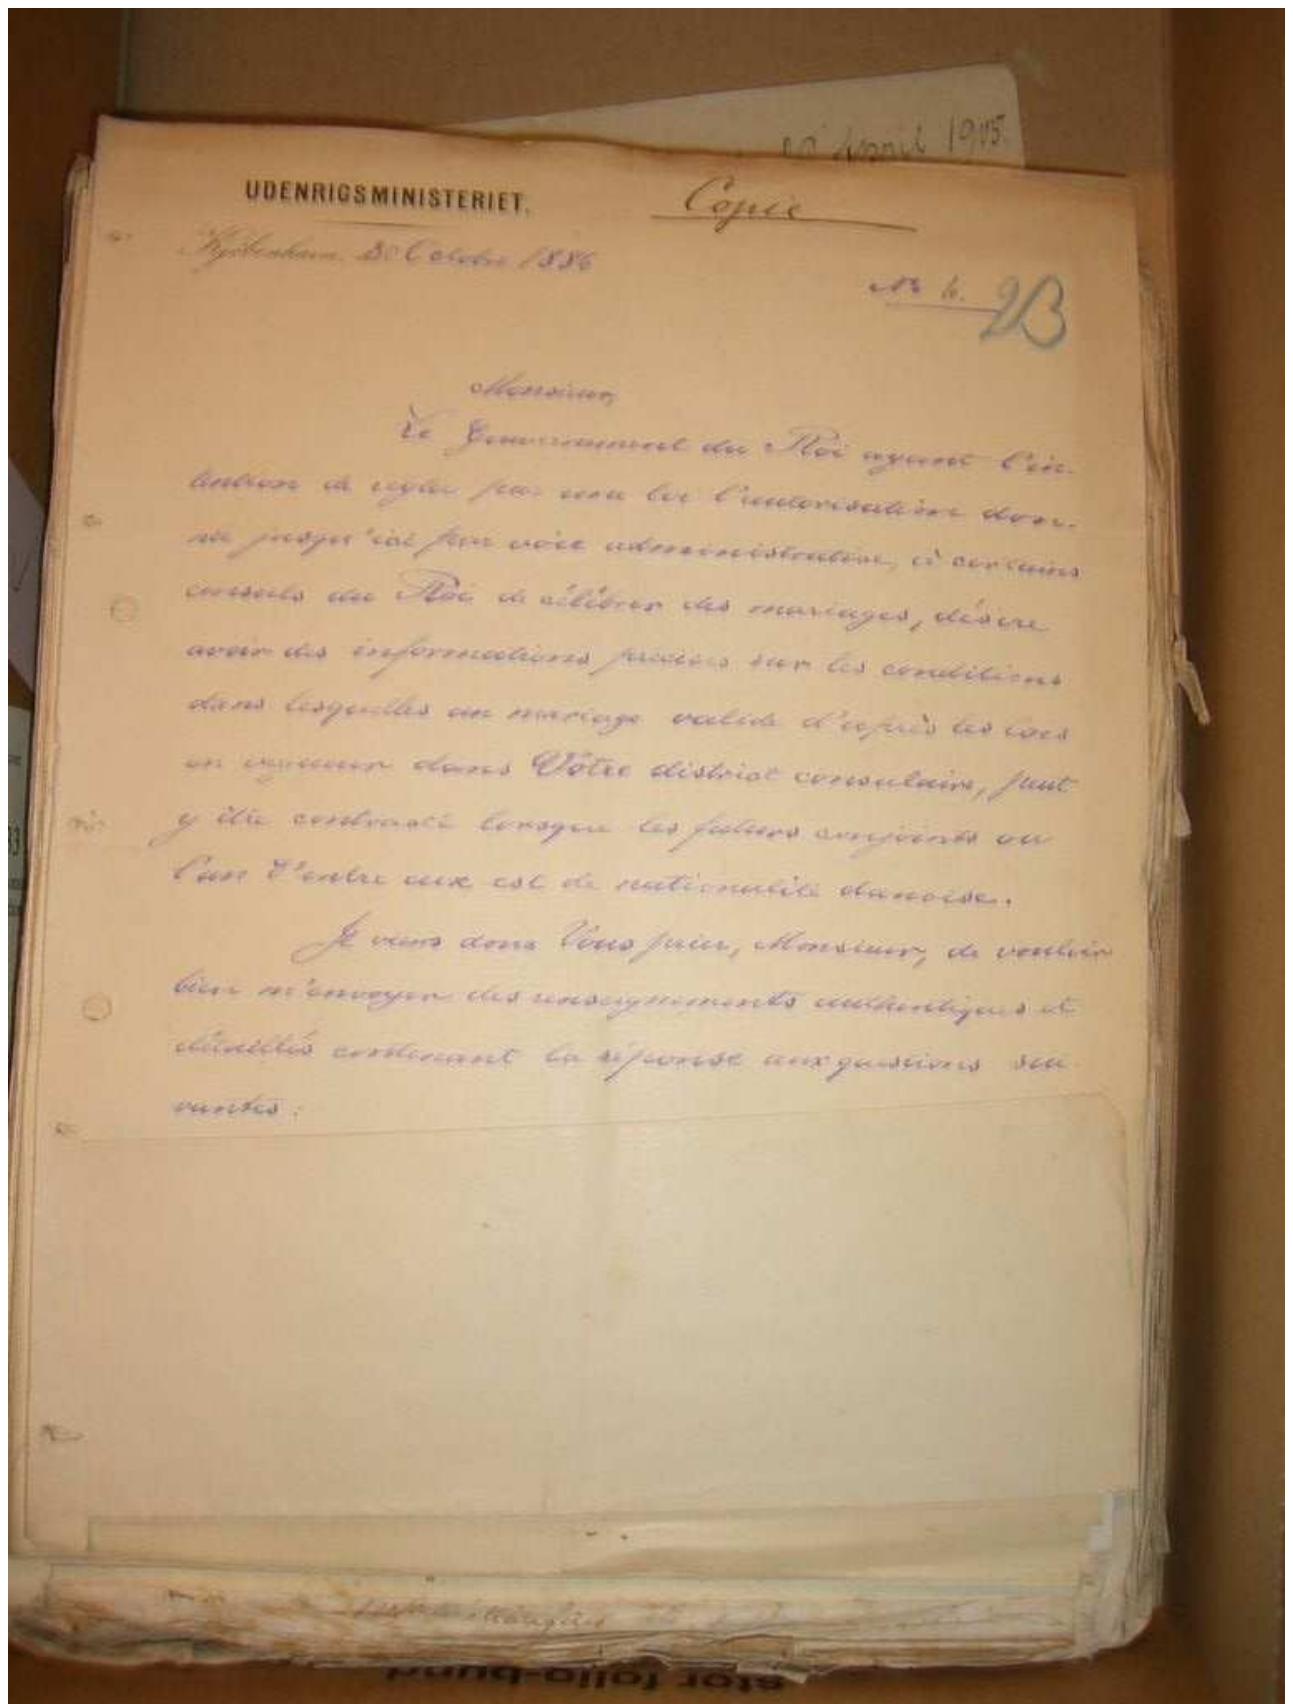 20 April 1905.
UDENRIGSMINISTERIET.
Copie
Kjøbenhavn, 30 Octobre 1886
No 4.
Monsieur,
Le Gouvernement du Roi ayant l'in-
tention de régler par une loi l'autorisation don-
née jusqu'ici par voie administrative, à certains
consuls du Roi de célébrer des mariages, désire
avoir des informations précises sur les conditions
dans lesquelles un mariage valide d'après les lois
en vigueur dans Vôtre district consulaire, peut
y être contracté lorsque les futurs conjoints ou
l'un d'entre eux est de nationalité danoise.
Je viens donc Vous prier, Monsieur, de vouloir
bien m'envoyer des renseignements authentiques et
détaillés contenant la réponse aux questions sui-
vantes:
stor folio-bund